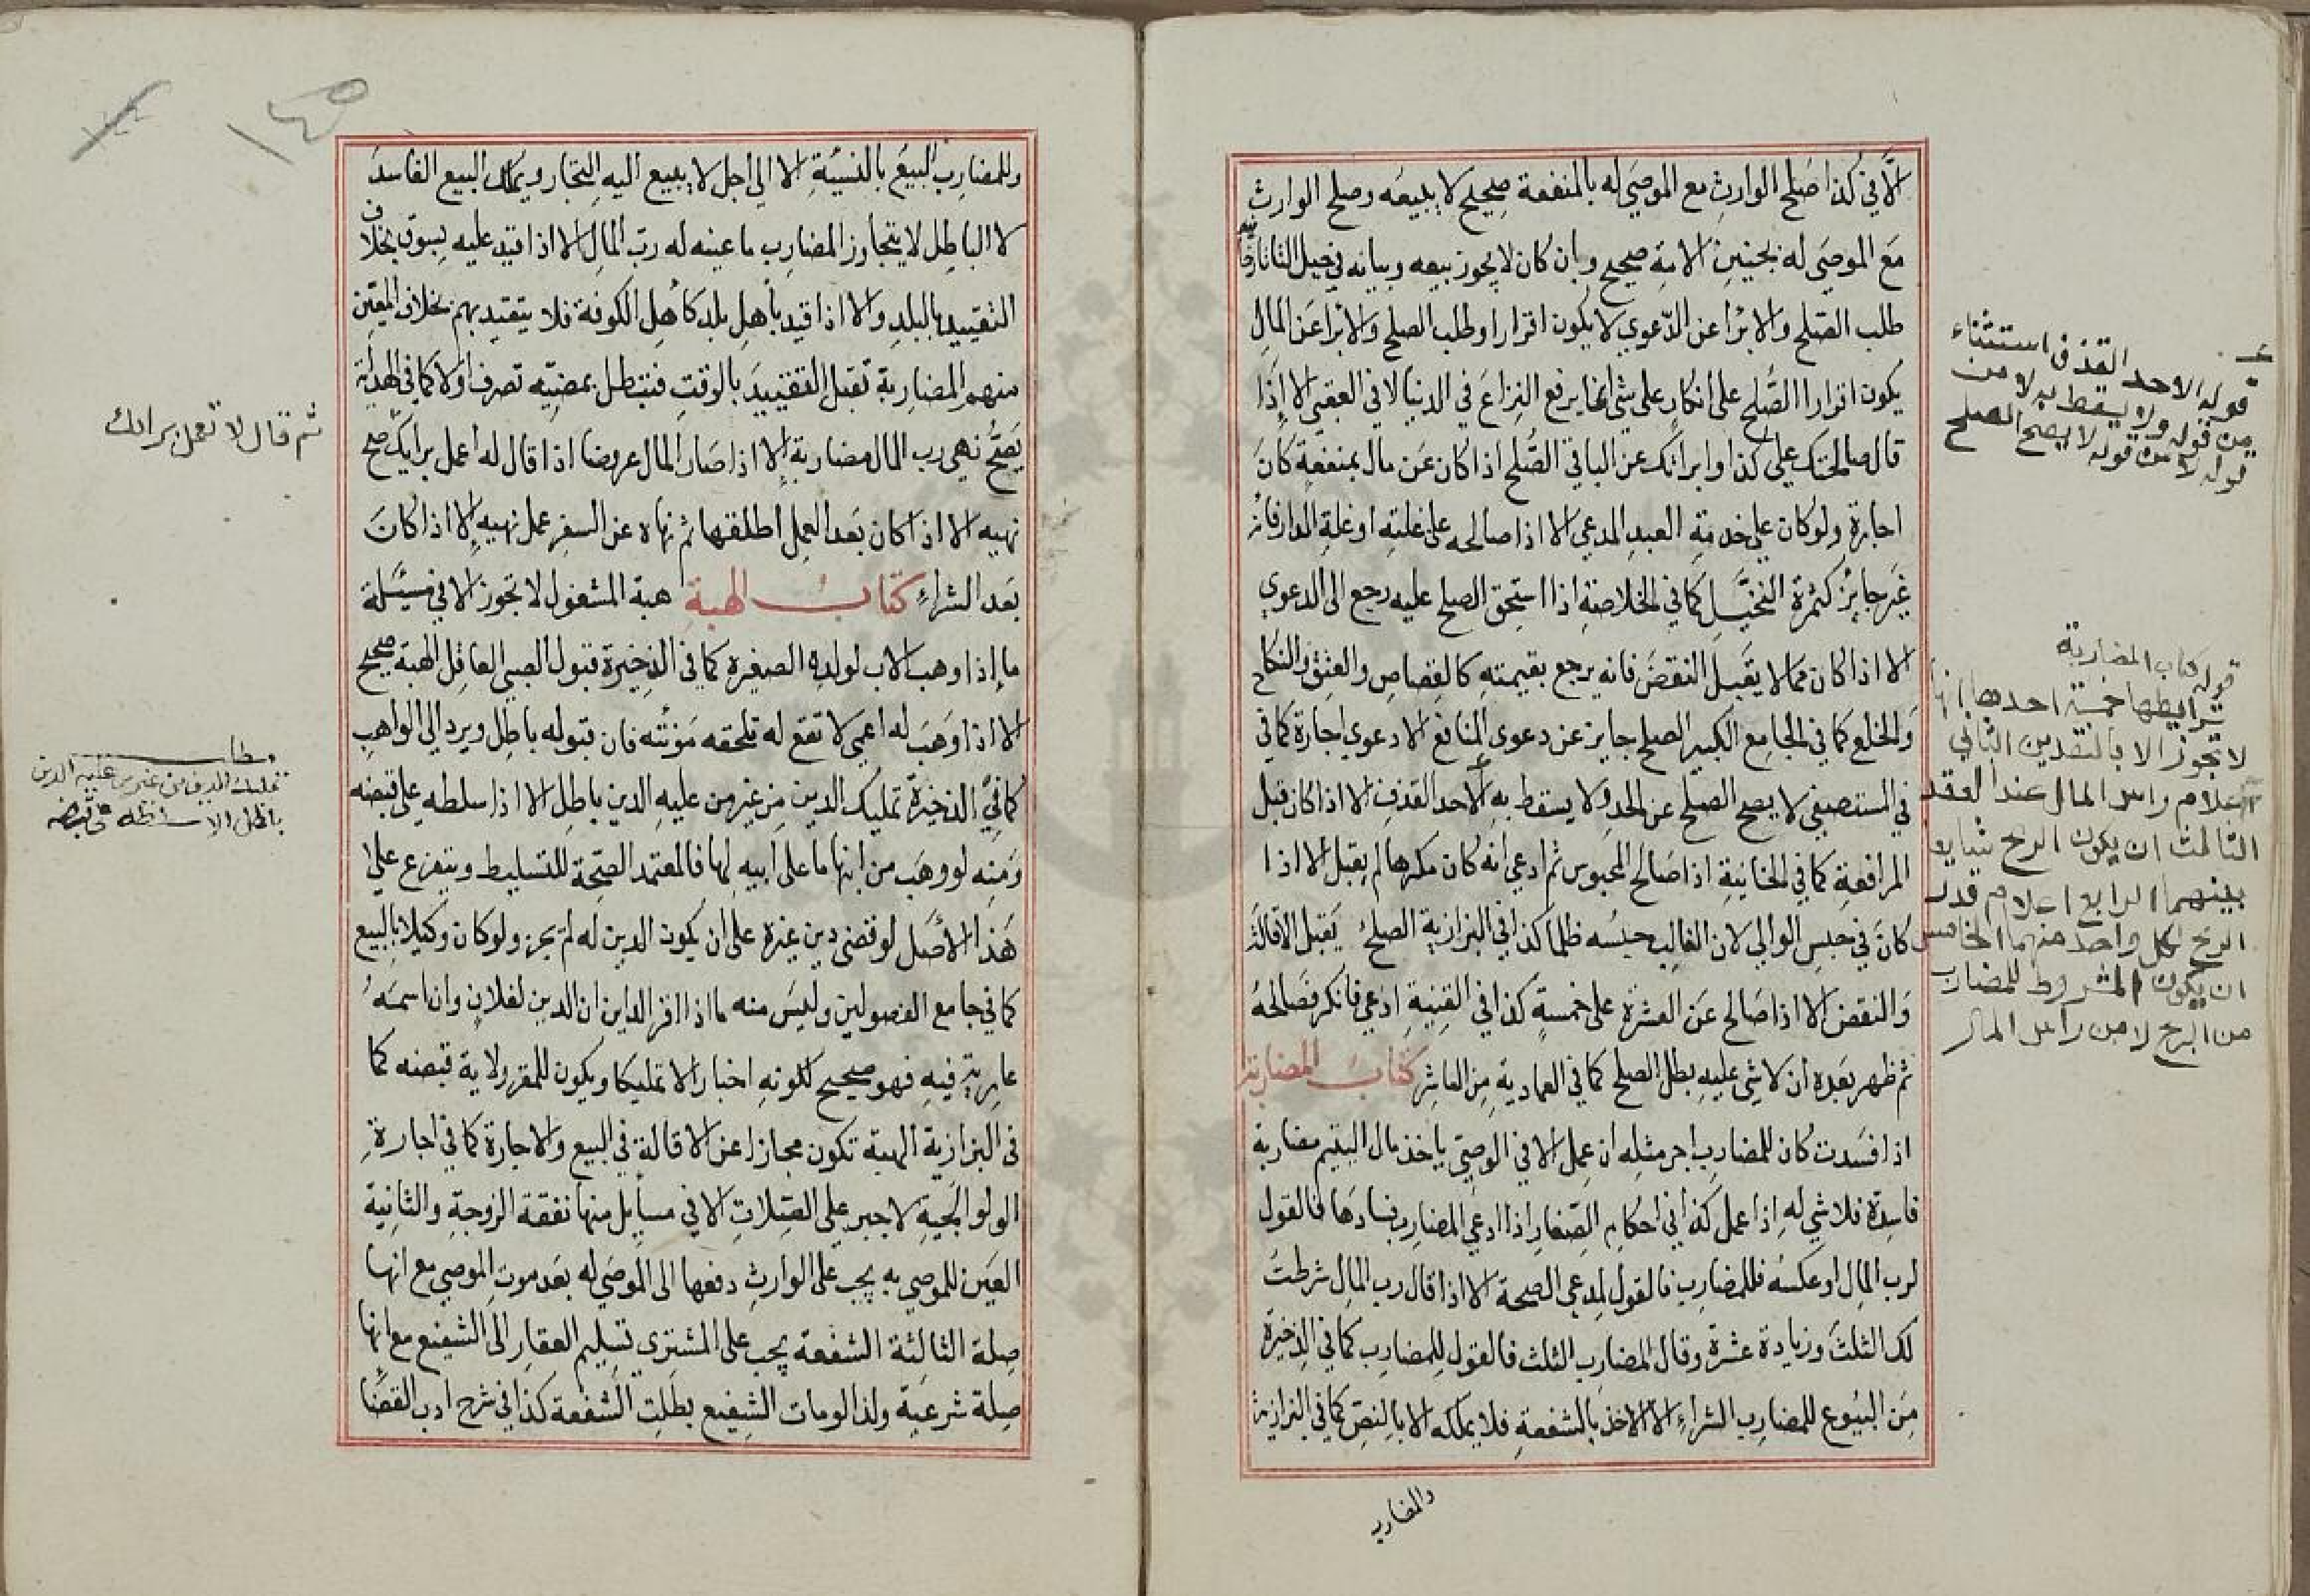 الا في كذا صلح الوارث مع الموصى له بالمنفعة صحيح لا ببيعه وصلح الوارث
مع الموصى له بجنين الامة صحيح وان كان لا يجوز بيعه وبيانه في حيل التاتارخانية
طلب الصلح والابرا عن الدعوى لا يكون اقرارا وطلب الصلح والابرا عن المال
يكون اقرارا الصلح على انكار على شي انما يرفع النزاع في الدنيا لا في العقبى الا اذا
قال صالحتك على كذا وابراتك عن الباقي الصلح اذا كان عن مال بمنفعة كان
اجارة ولو كان على خدمة العبد المدعى الا اذا صالحه على غلته او غلة الدار فانه
غير جايز كثمرة النخيل كما في الخلاصة اذا استحق الصلح عليه رجع الى الدعوى
الا اذا كان مما لا يقبل النقض فانه يرجع بقيمته كالقصاص والعتق والنكاح
والخلع كما في الجامع الكبير الصلح جايز عن دعوى المنافع الا دعوى اجارة كما في
في المستصفى لا يصح الصلح عن الحد ولا يسقط به الا حد القذف الا اذا كان قبل
المرافعة كما في الخانية اذا صالح المحبوس ثم ادعى انه كان مكرها لم يقبل الا اذا
كان في حبس الوالي لان الغالب حبسه ظلما كذا في البزازية الصلح يقبل الاقالة
والنقض الا اذا صالح عن العشرة على خمسة كذا في القنية ادعى فانكر فصالحه
ثم ظهر بعده ان لا شي عليه بطل الصلح كما في العمادية من العاشر كتاب المضاربة
اذا فسدت كان للمضارب اجر مثله ان عمل الا في الوصي ياخذ مال اليتيم مضاربة
فاسدة فلا شي له اذا عمل كذا في احكام الصغار اذا ادعى المضارب فسادها فالقول
لرب المال او عكسه فللمضارب فالقول لمدعى الصحة الا اذا قال رب المال شرطت
لك الثلث وزيادة عشرة وقال المضارب الثلث فالقول للمضارب كما في الذخيرة
من البيوع للمضارب الشراء الا الاخذ بالشفعة فلا يملكه الا بالنص كما في البزازية
والمضارب
قوله الا حد القذف استثناء
من قوله ولا يسقط به لا من
قوله لا من قوله لا يصح الصلح
قوله كتاب المضاربة
شرايطها خمسة احدها انها
لا تجوز الا بالنقدين الثاني
اعلام راس المال عند العقد
الثالث ان يكون الربح شايعا
بينهما الرابع اعلام قدر
الربح لكل واحد منهما الخامس
ان يكون المشروط للمضارب
من الربح لا من راس المال
١٤٥
وللمضارب البيع بالنسيئة الا الى اجل لا يبيع اليه التجار ويملك البيع الفاسد
لا الباطل لا يتجاوز المضارب ما عينه له رب المال الا اذا قيد عليه بسوق بخلاف
التقييد بالبلد والا اذا قيد باهل بلد كاهل الكوفة فلا يتقيد بهم بخلاف المعين
منهم المضاربة تقبل التقييد بالوقت فتبطل بمضيه تصرف او لا كما في الهداية
يصح نهي رب المال مضاربة الا اذا صار المال عروضا اذا قال له اعمل برايك صح
نهيه الا اذا كان بعد العمل اطلقها ثم نهاه عن السفر عمل نهيه الا اذا كان
بعد الشراء كتاب الهبة هبة المشغول لا تجوز الا في مسئلة
ما اذا وهب الاب لولده الصغيرة كما في الذخيرة قبول الصبي العاقل الهبة صحيح
الا اذا وهب له اعمى لا تقع له تلحقه مؤنته فان قبوله باطل ويرد الى الواهب
كما في الذخيرة تمليك الدين من غير من عليه الدين باطل الا اذا سلطه على قبضه
ومنه لو وهب من ابنها ما على ابيه لها فالمعتمد الصحة للتسليط ويتفرع على
هذا الاصل لو قضى دين غيره على ان يكون الدين له لم يجز ولو كان وكيلا بالبيع
كما في جامع الفصولين وليس منه ما اذا اقر الداين ان الدين لفلان وان اسمه
عارية فيه فهو صحيح لكونه اخبارا لا تمليكا ويكون للمقر ولاية قبضه كما
في البزازية الهبة تكون مجازا عن الاقالة في البيع والاجارة كما في اجارة
الولوالجية لا جبر على الصلات الا في مسايل منها نفقة الزوجة والثانية
العين للموصى به يجب على الوارث دفعها الى الموصى له بعد موت الموصي مع انها
صلة الثالثة الشفعة يجب على المشتري تسليم العقار الى الشفيع مع انها
صلة شرعية ولذا لو مات الشفيع بطلت الشفعة كذا في شرح ادب القضا
ثم قال لا تعمل برايك
مطلب
تمليك الدين من غير من عليه الدين
باطل الا اذا سلطه على قبضه